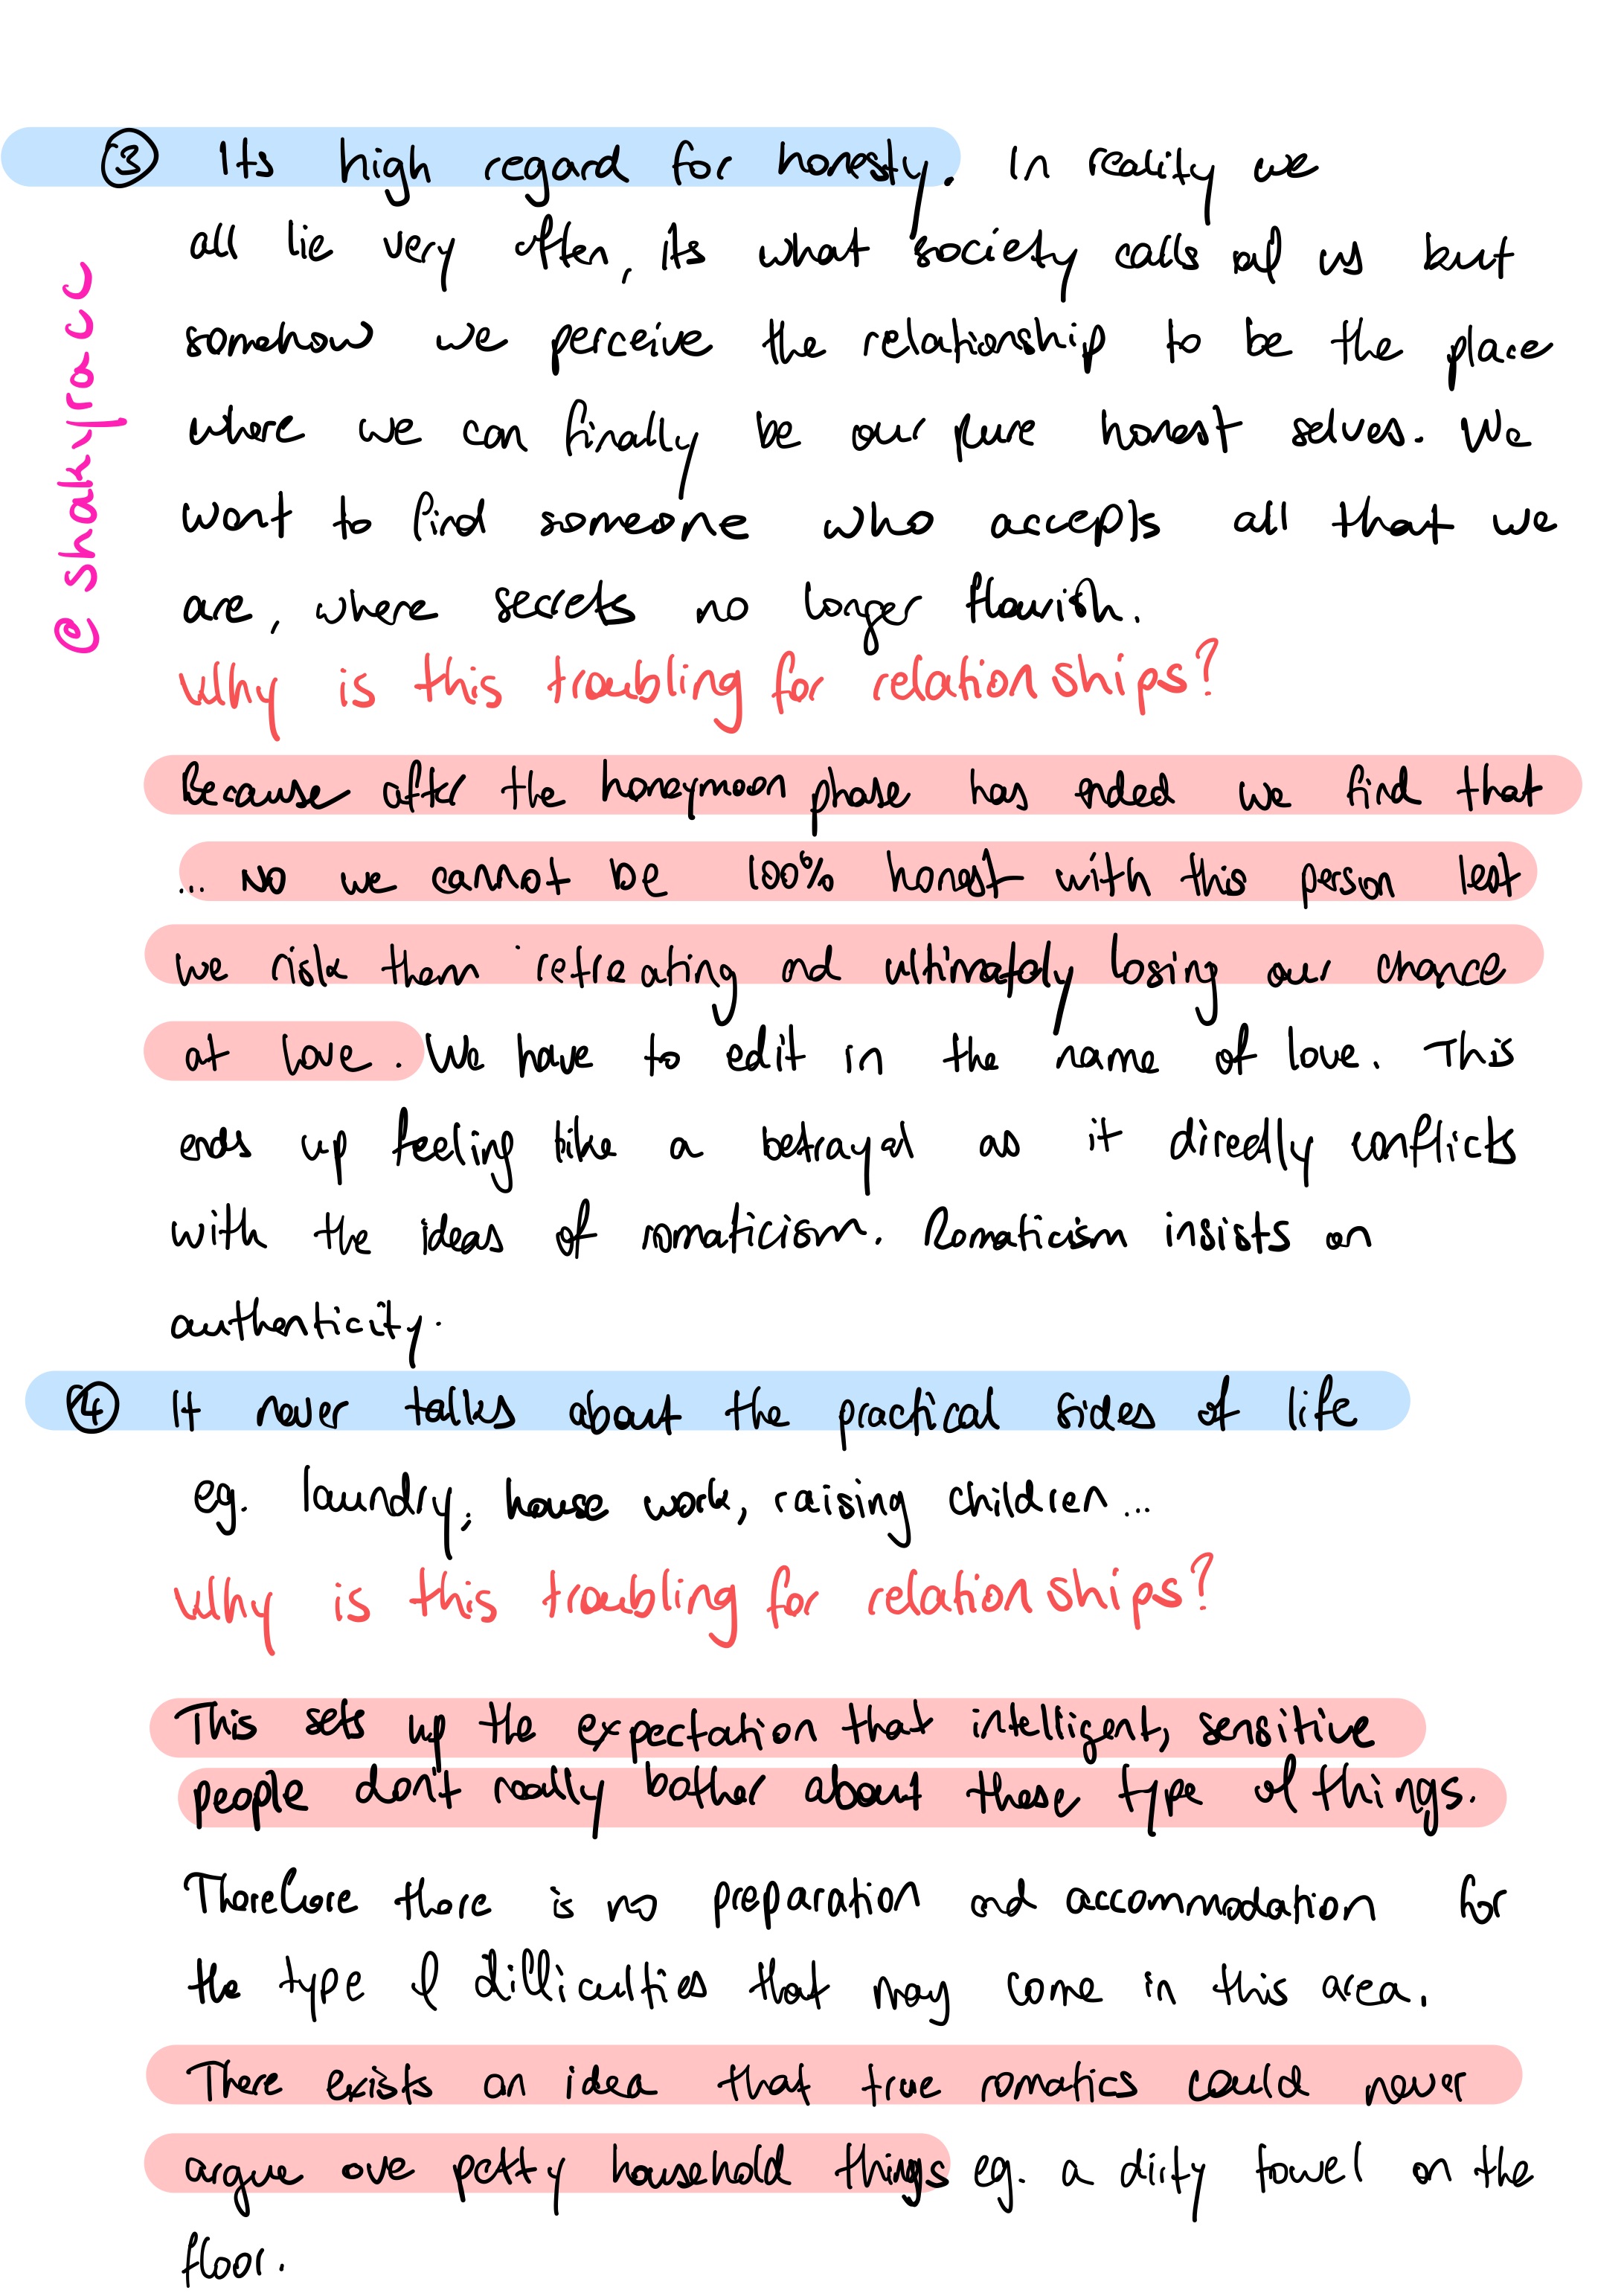 ③ Its high regard for honesty. In reality we
all lie very often, its what society calls of us but
somehow we perceive the relationship to be the place
where we can finally be our pure honest selves. We
want to find someone who accepts all that we
are, where secrets no longer flourish.
Why is this troubling for relationships?
Because after the honeymoon phase has ended we find that
... No we cannot be 100% honest with this person lest
we risk them retreating and ultimately losing our chance
at love. We have to edit in the name of love. This
ends up feeling like a betrayal as it directly conflicts
with the ideas of romaticism. Romaticism insists on
authenticity.
④ It never talks about the practical sides of life
eg. laundry, house work, raising children...
Why is this troubling for relationships?
This sets up the expectation that intelligent, sensitive
people don't really bother about these type of things.
Therefore there is no preparation and accommodation for
the type of difficulties that may come in this area.
There exists an idea that true romatics could never
argue ove petty household things eg. a dirty towel on the
floor.
@shakyracc